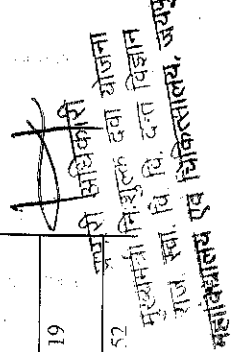 19
52
प्रभारी अधिकारी
मुख्यमंत्री निःशुल्क दवा योजना
राज. स्वा. वि. वि. दन्त विज्ञान
महाविद्यालय एवं चिकित्सालय, जयपुर